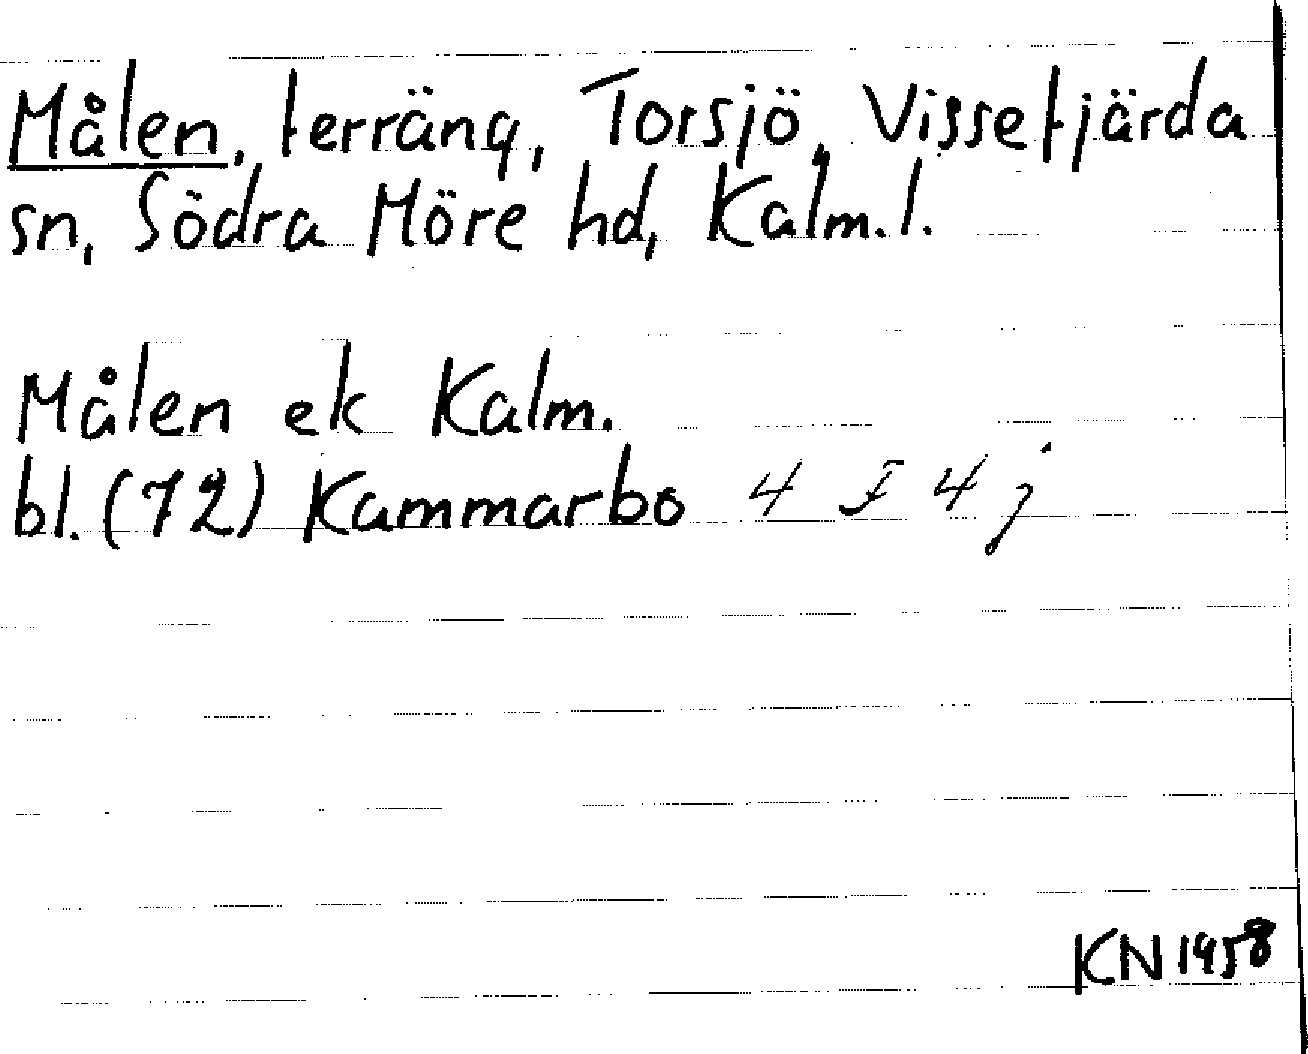 Målen, terräng, Torsjö, Vissefjärda
sn, Södra Möre hd, Kalm.l.
Målen ek Kalm.
bl. (72) Kammarbo 4 F 4 j
KN 1958